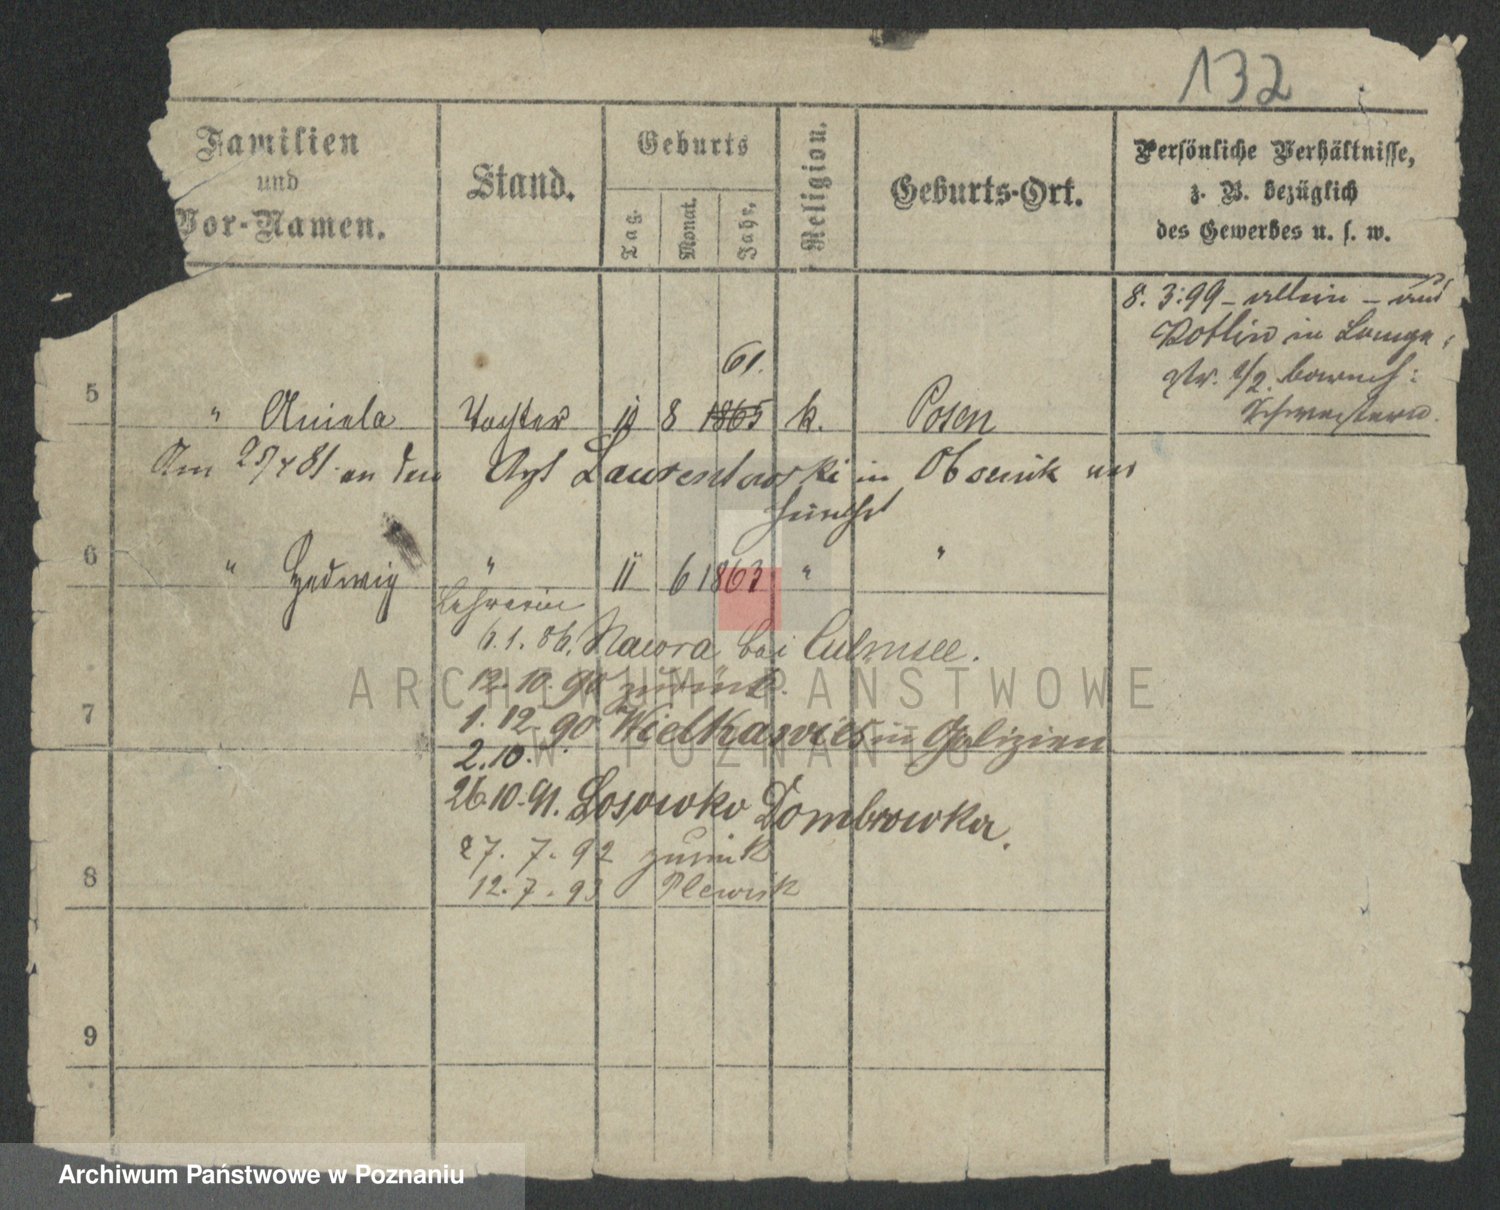 132
Familien
und
Vor-Namen.
Stand.
Geburts
Tag.
Monat.
Jahr.
Religion.
Geburts-Ort.
Persönliche Verhältnisse,
z. B. bezüglich
des Gewerbes u. s. w.
8. 3. 99 – allein –
in
barmh:
Schwestern.
61.
5 " Aniela Tochter 10 8 1865 k. Posen
Am 25/4 81. an den Laurentowski in Obornik ver
6 " Hedwig " 11 6 1863 " "
Lehrerin
6. 1. 86. Nawra bei Culmsee.
12. 10. 90 zurück.
7
1. 12. 90 Wielkawies in Galizien
2. 10.
26. 10. 91. Dombrowka.
27. 7. 92 zurück
8
12. 7. 93 Plewisk
9
ARCHIWUM PAŃSTWOWE
W POZNANIU
Archiwum Państwowe w Poznaniu